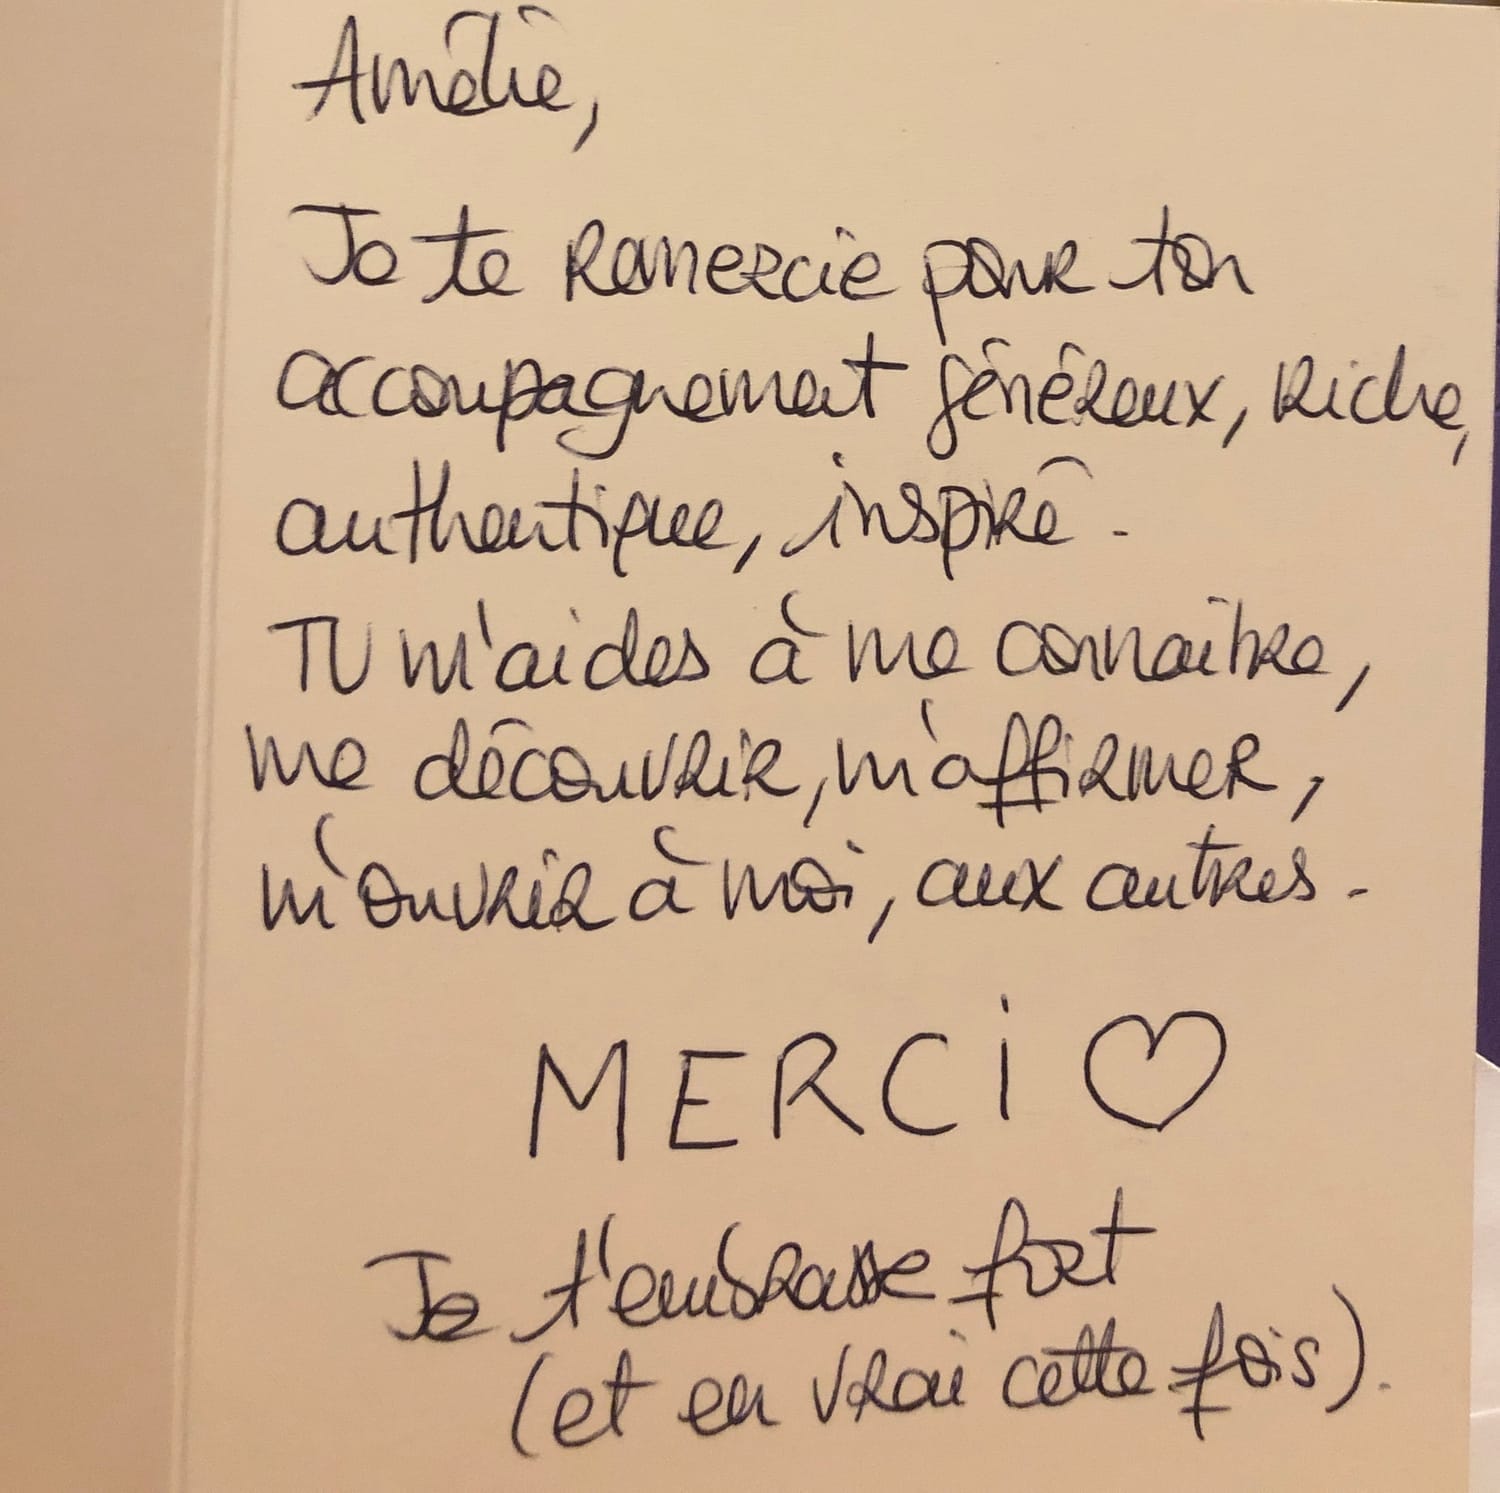 Amélie,
Je te remercie pour ton
accompagnement généreux, riche,
authentique, inspiré.
TU m'aides à me connaître,
me découvrir, m'affirmer,
m'ouvrir à moi, aux autres.
MERCi ♡
Je t'embrasse fort
(et en vrai cette fois).